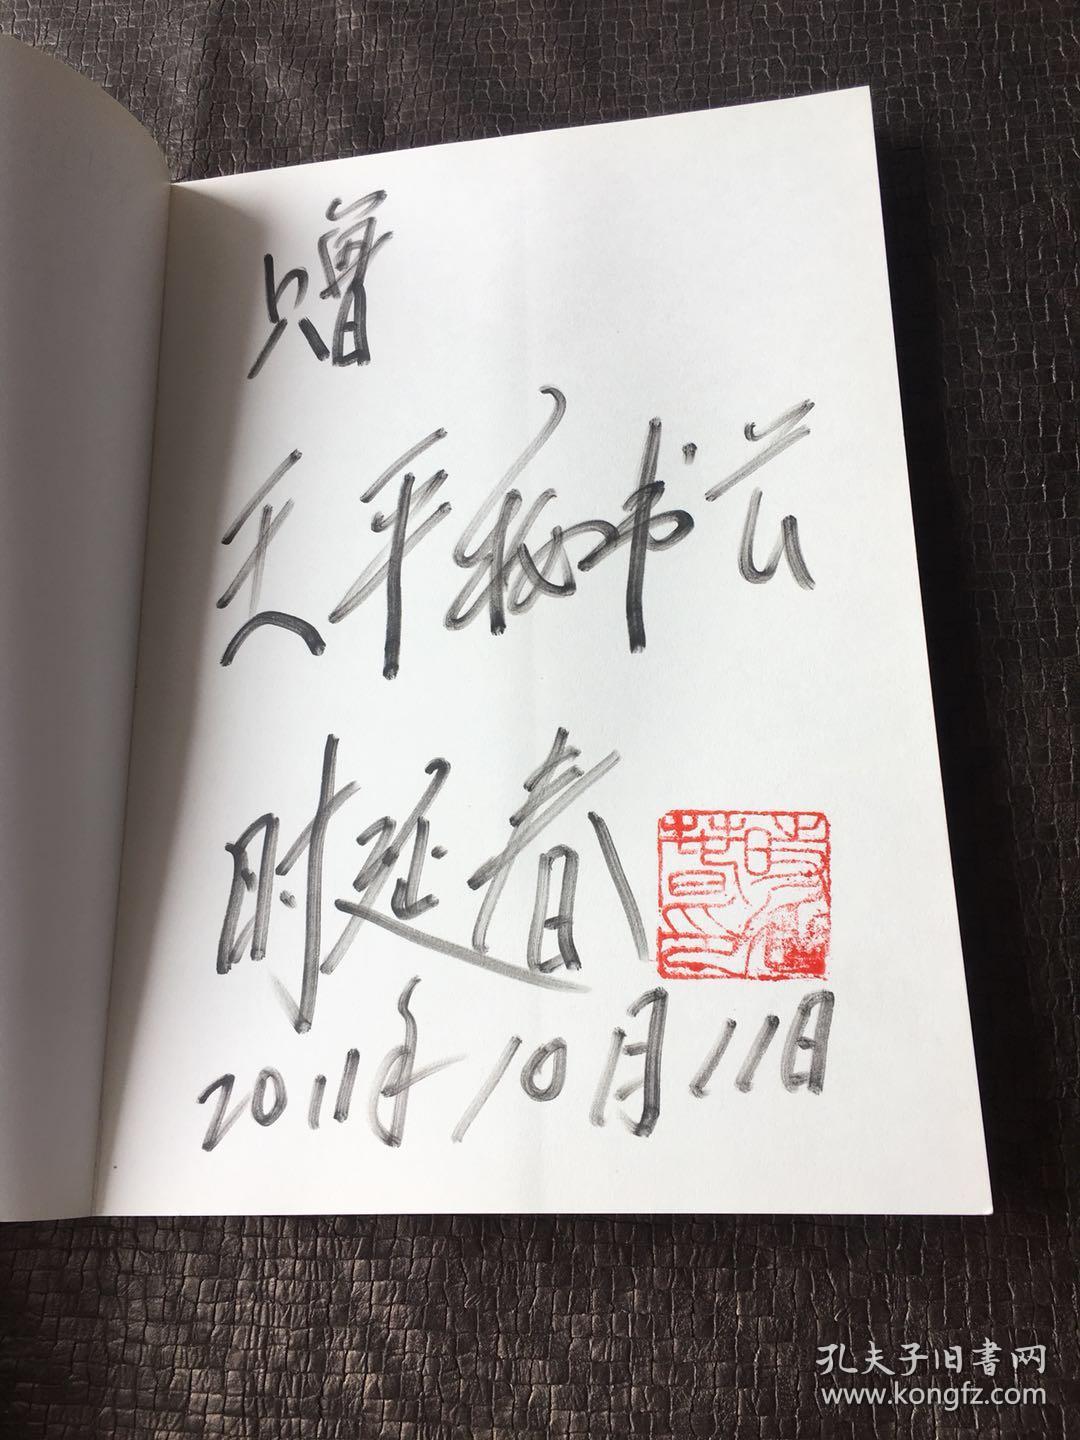 赠
天平秘书长
时延春
2011年10月11日
孔夫子旧書网
www.kongfz.com